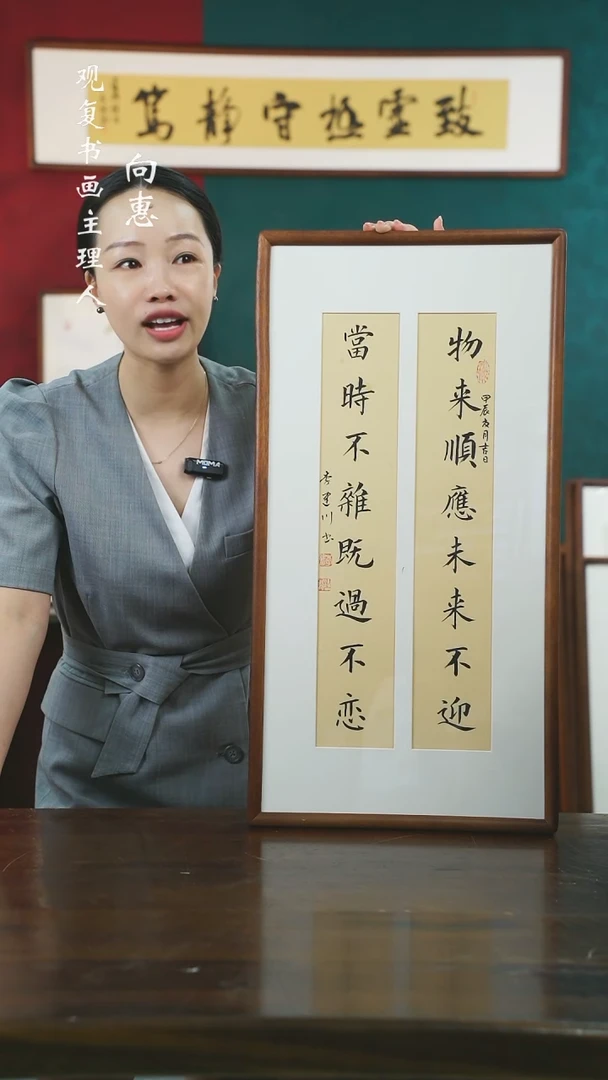 致虚極守静篤
观复书画主理人
向惠
物来順應未来不迎
甲辰春月吉日
當時不雜既過不恋
李建川书
MOMA